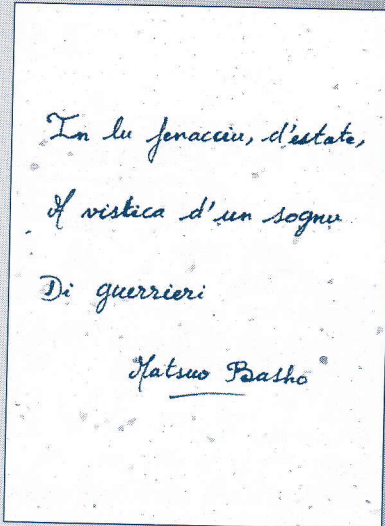 In lu fenacciu, d'estate,
A vistica d'un sognu
Di guerrieri
Matsuo Basho